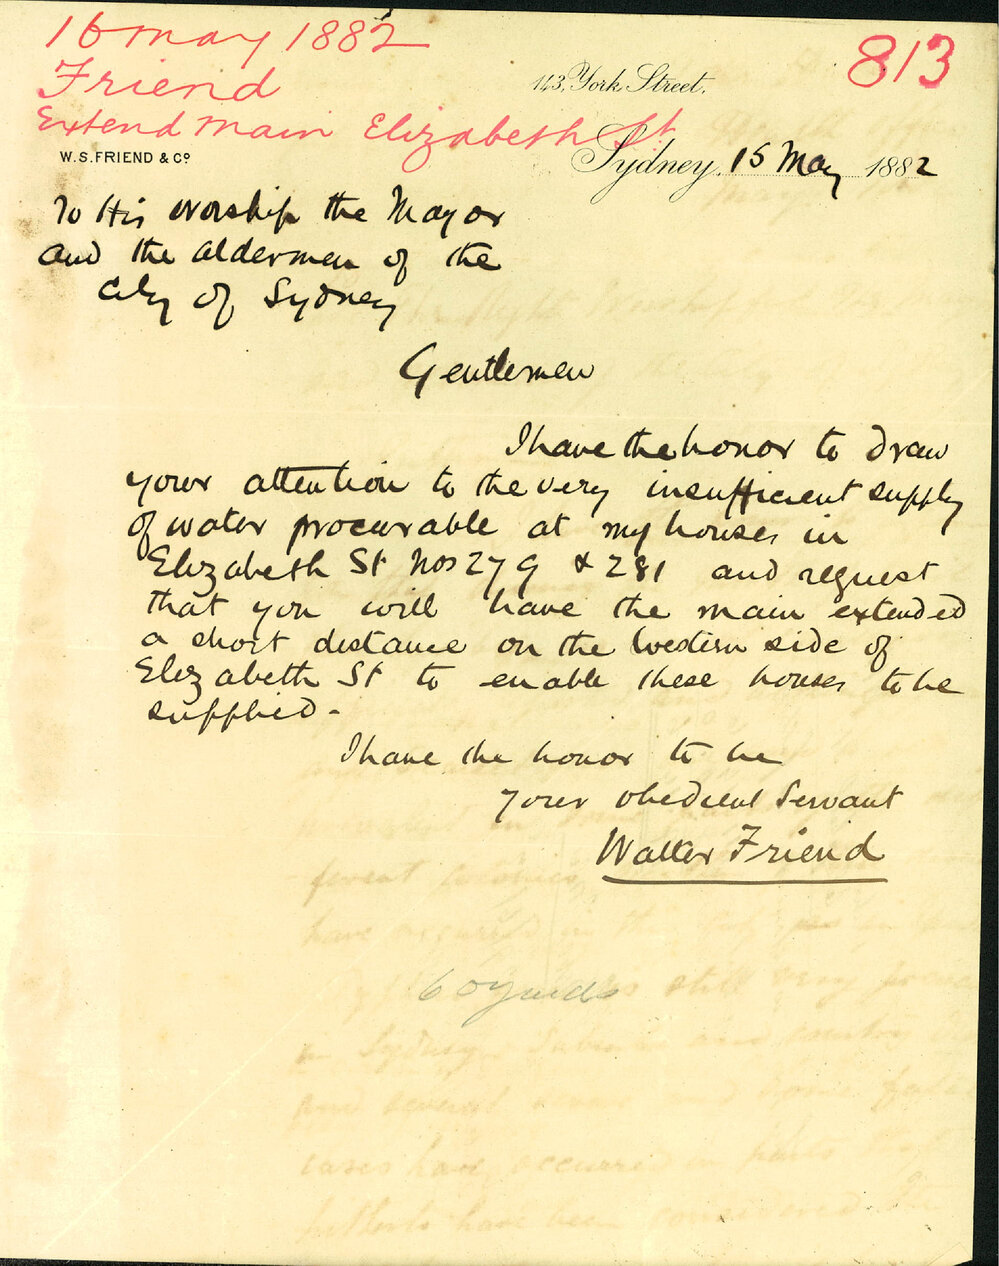 16 May 1882
Friend
Extend main Elizabeth St
813
143, York Street,
W. S. FRIEND & Co.
Sydney, 15 May 1882
To His Worship the Mayor
and the Aldermen of the
City of Sydney
Gentlemen
I have the honor to draw
your attention to the very insufficient supply
of water procurable at my houses in
Elizabeth St Nos 279 & 281 and request
that you will have the main extended
a short distance on the Western side of
Elizabeth St to enable these houses to be
supplied.-
I have the honor to be
your obedient Servant
Walter Friend
60 yards